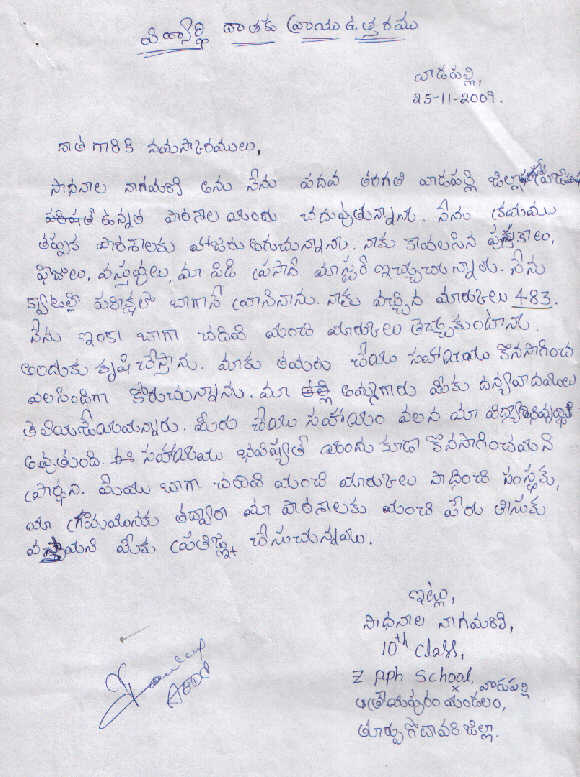 విద్యార్థి దాతకు వ్రాయు ఉత్తరము
వాడపల్లి,
25-11-2009.
దాత గారికి నమస్కారములు,
సాధనాల నాగమణి అను నేను పదవ తరగతి వాడపల్లి జిల్లా
ఉన్నత పాఠశాల యందు చదువుతున్నాను. నేను క్రమము
తప్పక పాఠశాలకు హాజరు అగుచున్నాను. నాకు కావలసిన పుస్తకాలు,
ఫీజులు, వస్తువులు, మా పిడి ప్రసాద్ మాస్టర్ ఇచ్చుచున్నారు. నేను
క్వాటర్లీ పరీక్షలో బాగానే వ్రాసినాను. నాకు వచ్చిన మార్కులు 483.
నేను ఇంకా బాగా చదివి మంచి మార్కులు తెచ్చుకుంటాను.
అందుకు కృషి చేస్తాను. మాకు తమరు చేయు సహాయం కొనసాగించ
వలసిందిగా కోరుచున్నాను. మా అమ్మగారు మీకు ధన్యవాదములు
తెలియజేయుచున్నారు. మీరు చేయు సహాయం వలన మా
అవుతుంది. ఈ సహాయము భవిష్యత్ యందు కూడా కొనసాగించమని
ప్రార్థన. మేము బాగా చదివి మంచి మార్కులు సాధించి సంస్థకు,
మా గ్రామమునకు తద్వారా మా పాఠశాలకు మంచి పేరు తీసుకు
వస్తామని మీకు ప్రతిజ్ఞ చేసుచున్నాము.
ఇట్లు,
సాధనాల నాగమణి,
10th Class,
Z PPH School, వాడపల్లి
ఆత్రేయపురం మండలం,
తూర్పుగోదావరి జిల్లా.